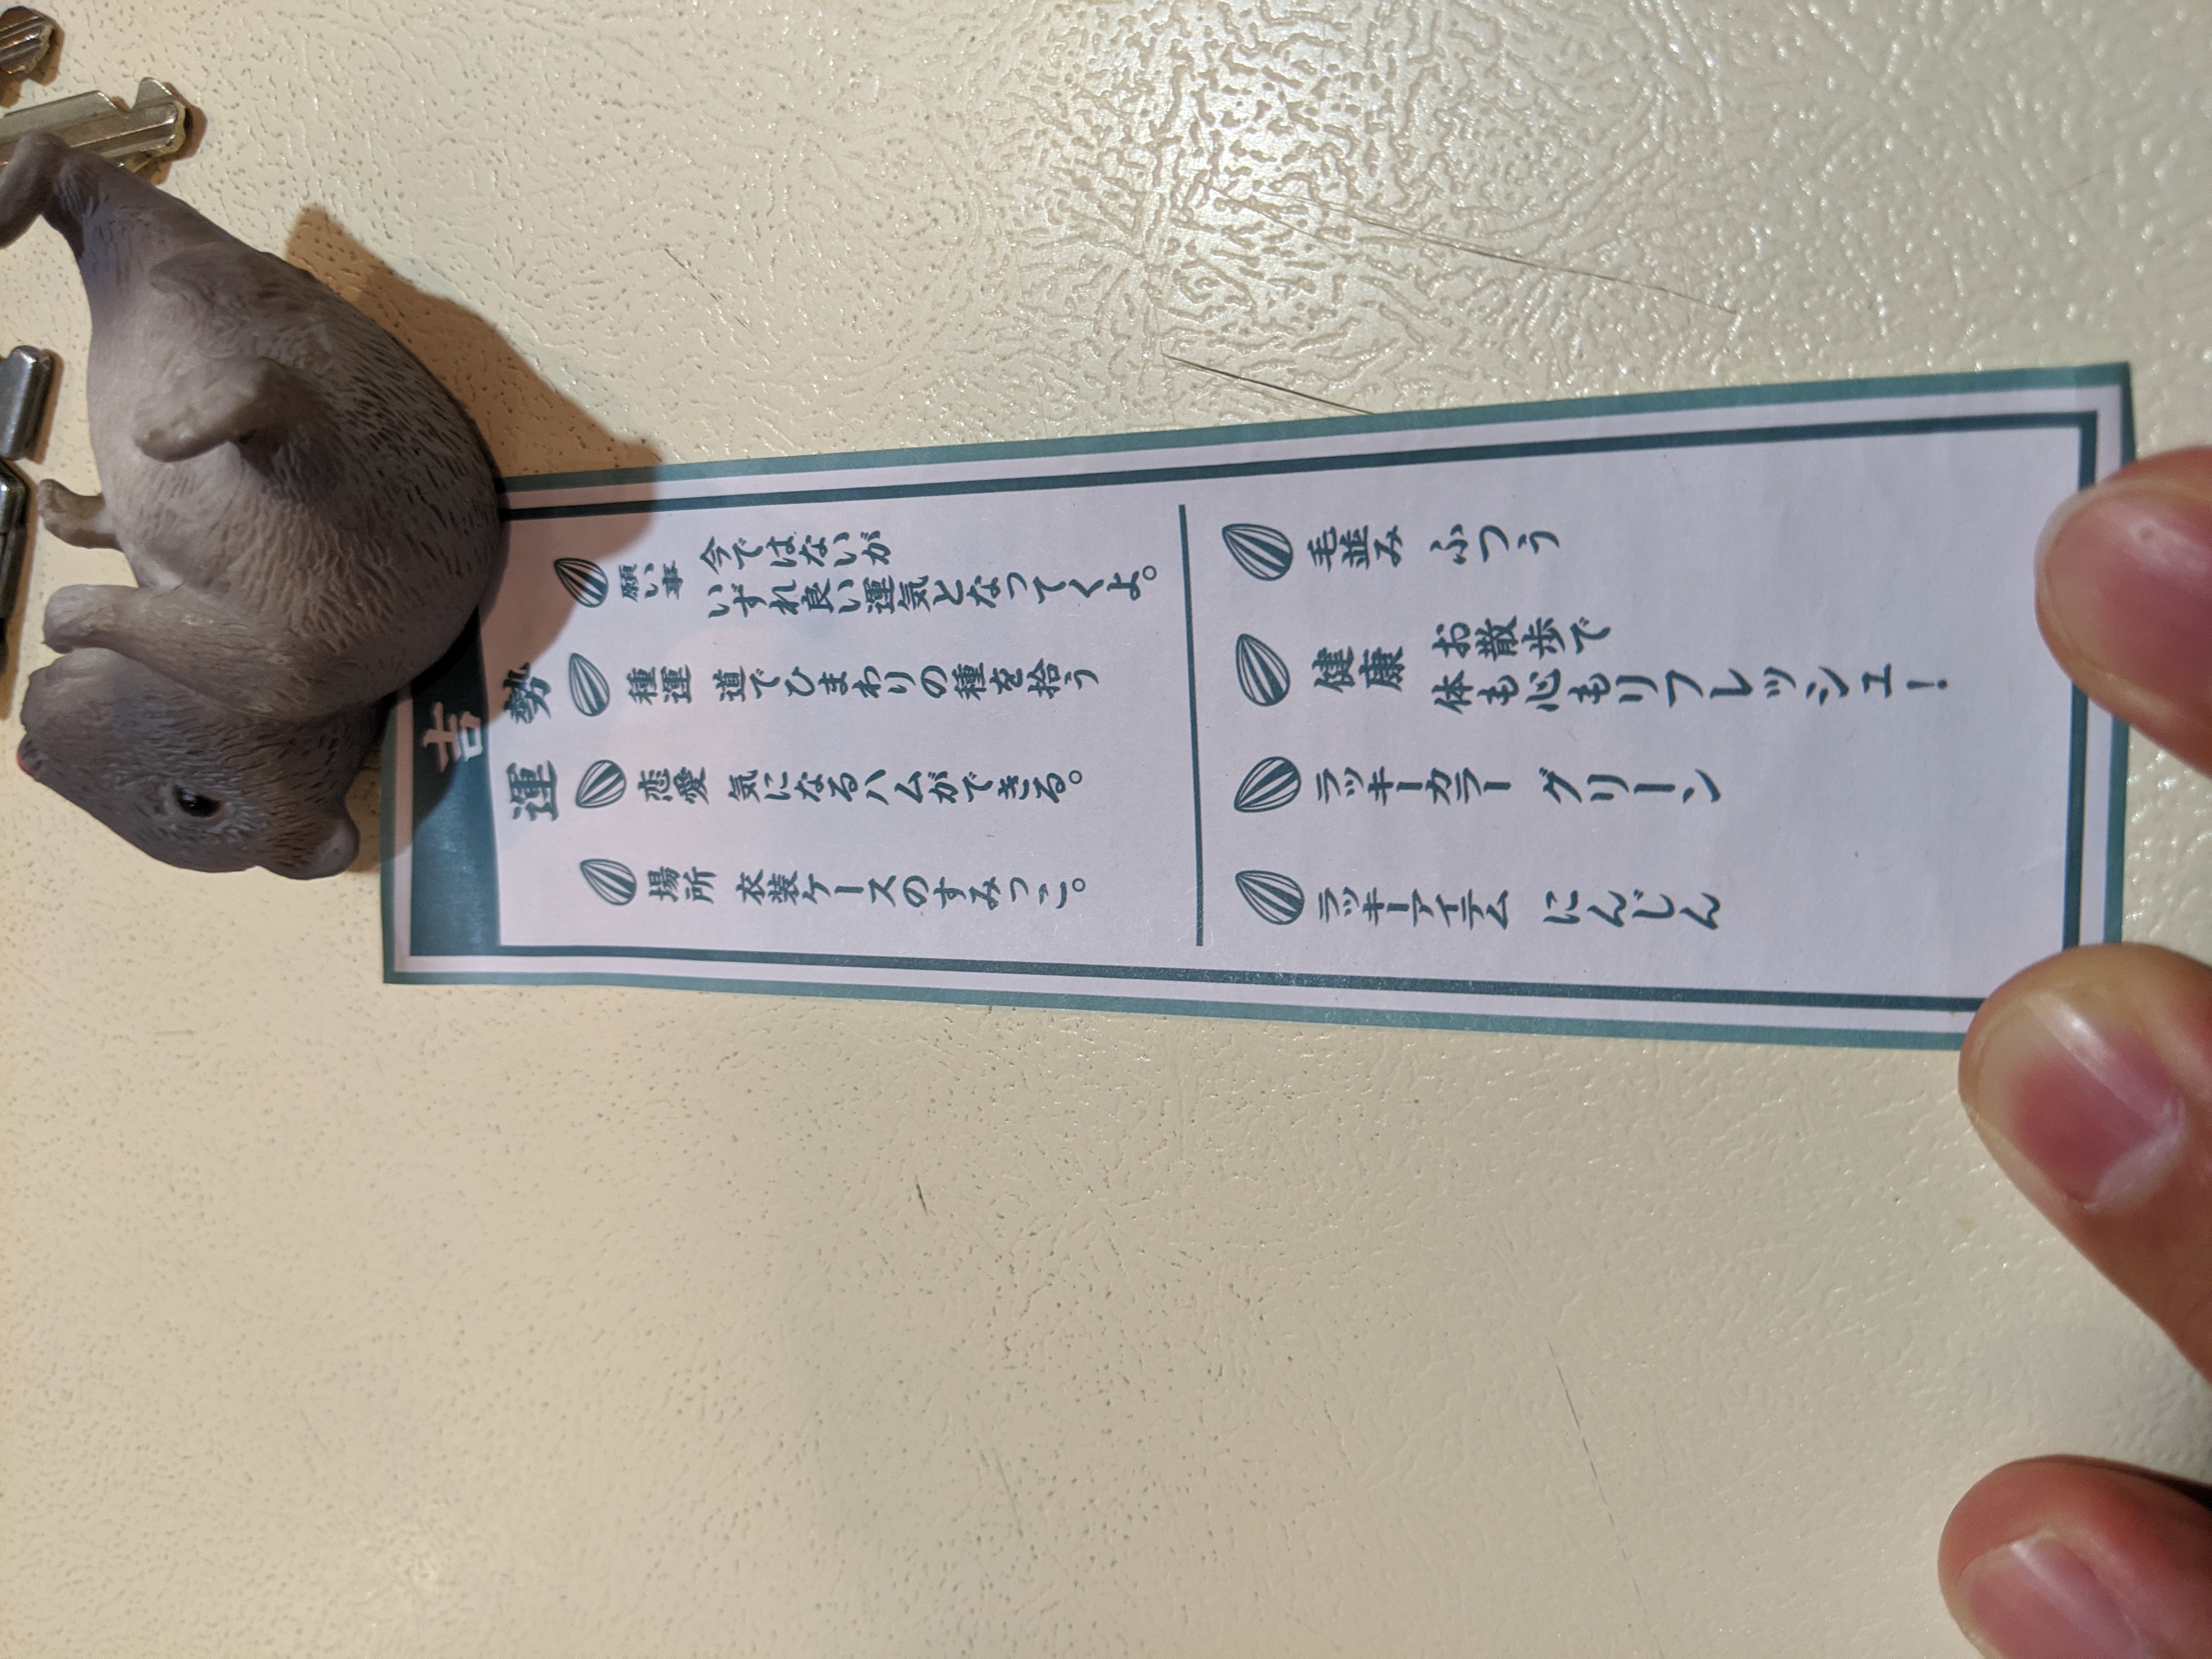 吉
運勢
願い事
今ではないが
いずれ良い運気となってくよ。
種運 道でひまわりの種を拾う
恋愛 気になるハムができる。
場所 衣装ケースのすみっこ。
毛並み ふつう
健康 お散歩で
体も心もリフレッシュ!
ラッキーカラー グリーン
ラッキーアイテム にんじん